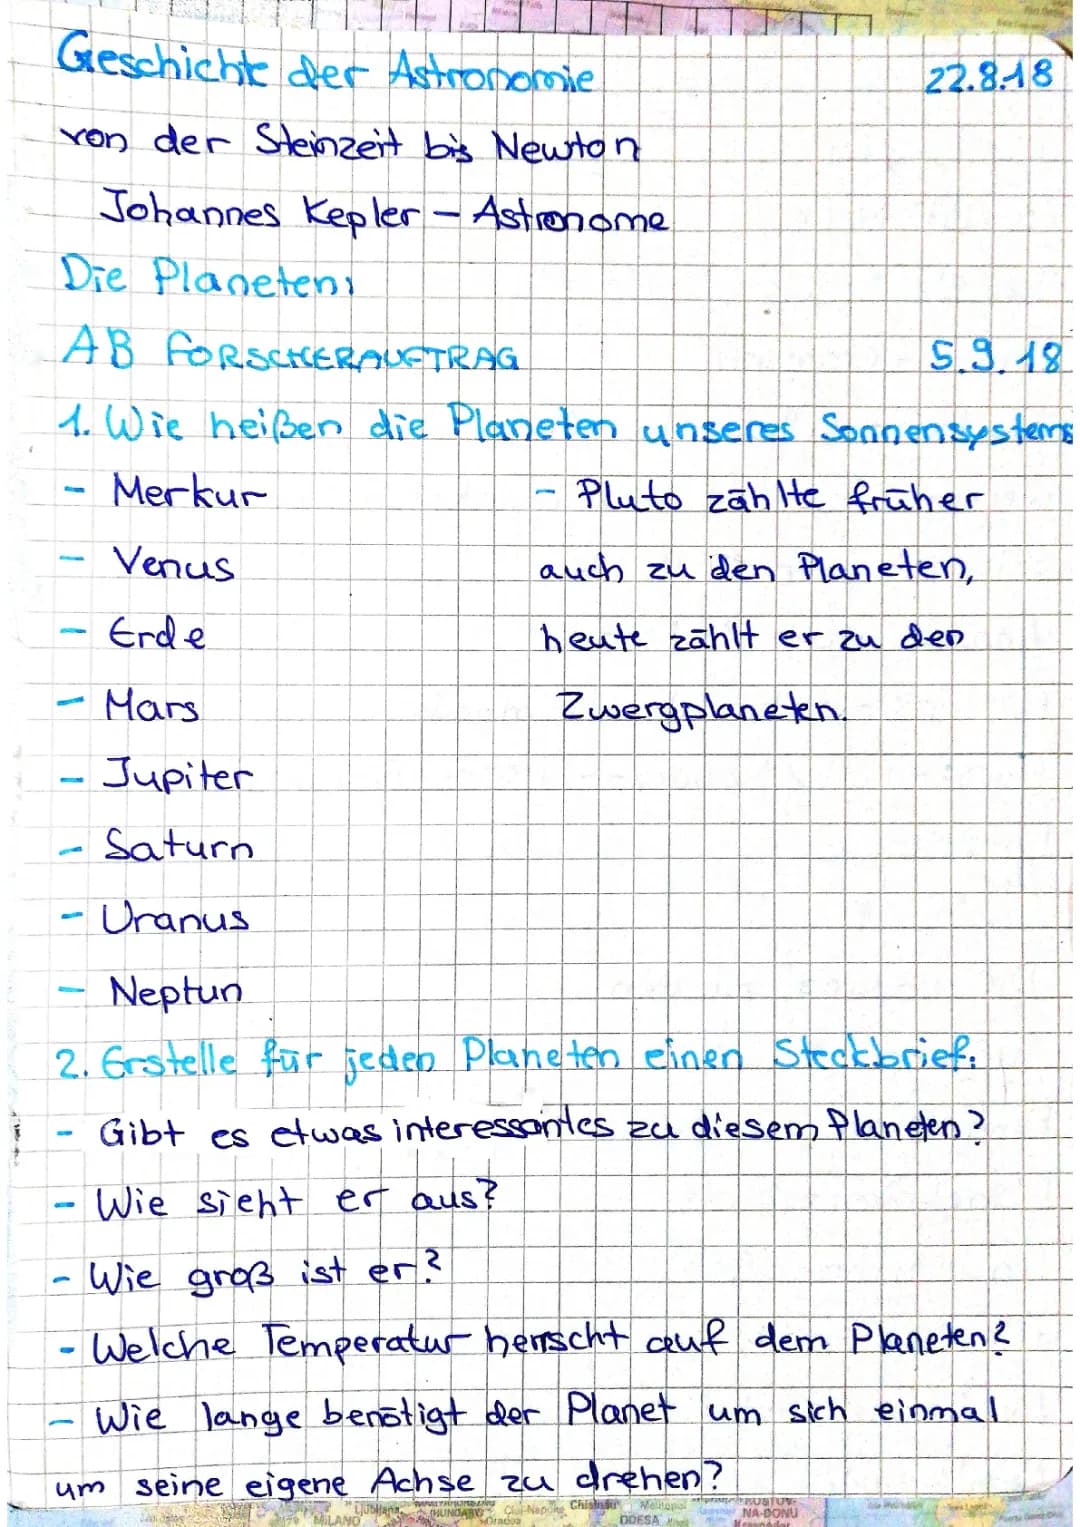 Geschichte der Astronomie 22.8.18
von der Steinzeit bis Newton
Johannes Kepler – Astronome
Die Planeten:
AB FORSCHERAUFTRAG 5.9.18
1. Wie heißen die Planeten unseres Sonnensystems
- Merkur - Pluto zählte früher
- Venus auch zu den Planeten,
- Erde heute zählt er zu den
- Mars Zwergplaneten.
- Jupiter
- Saturn
- Uranus
- Neptun
2. Erstelle für jeden Planeten einen Steckbrief:
- Gibt es etwas interessantes zu diesem Planeten?
- Wie sieht er aus?
- Wie groß ist er?
- Welche Temperatur herrscht auf dem Planeten?
- Wie lange benötigt der Planet um sich einmal
um seine eigene Achse zu drehen?
MILANO
ODESA
NA-DONU